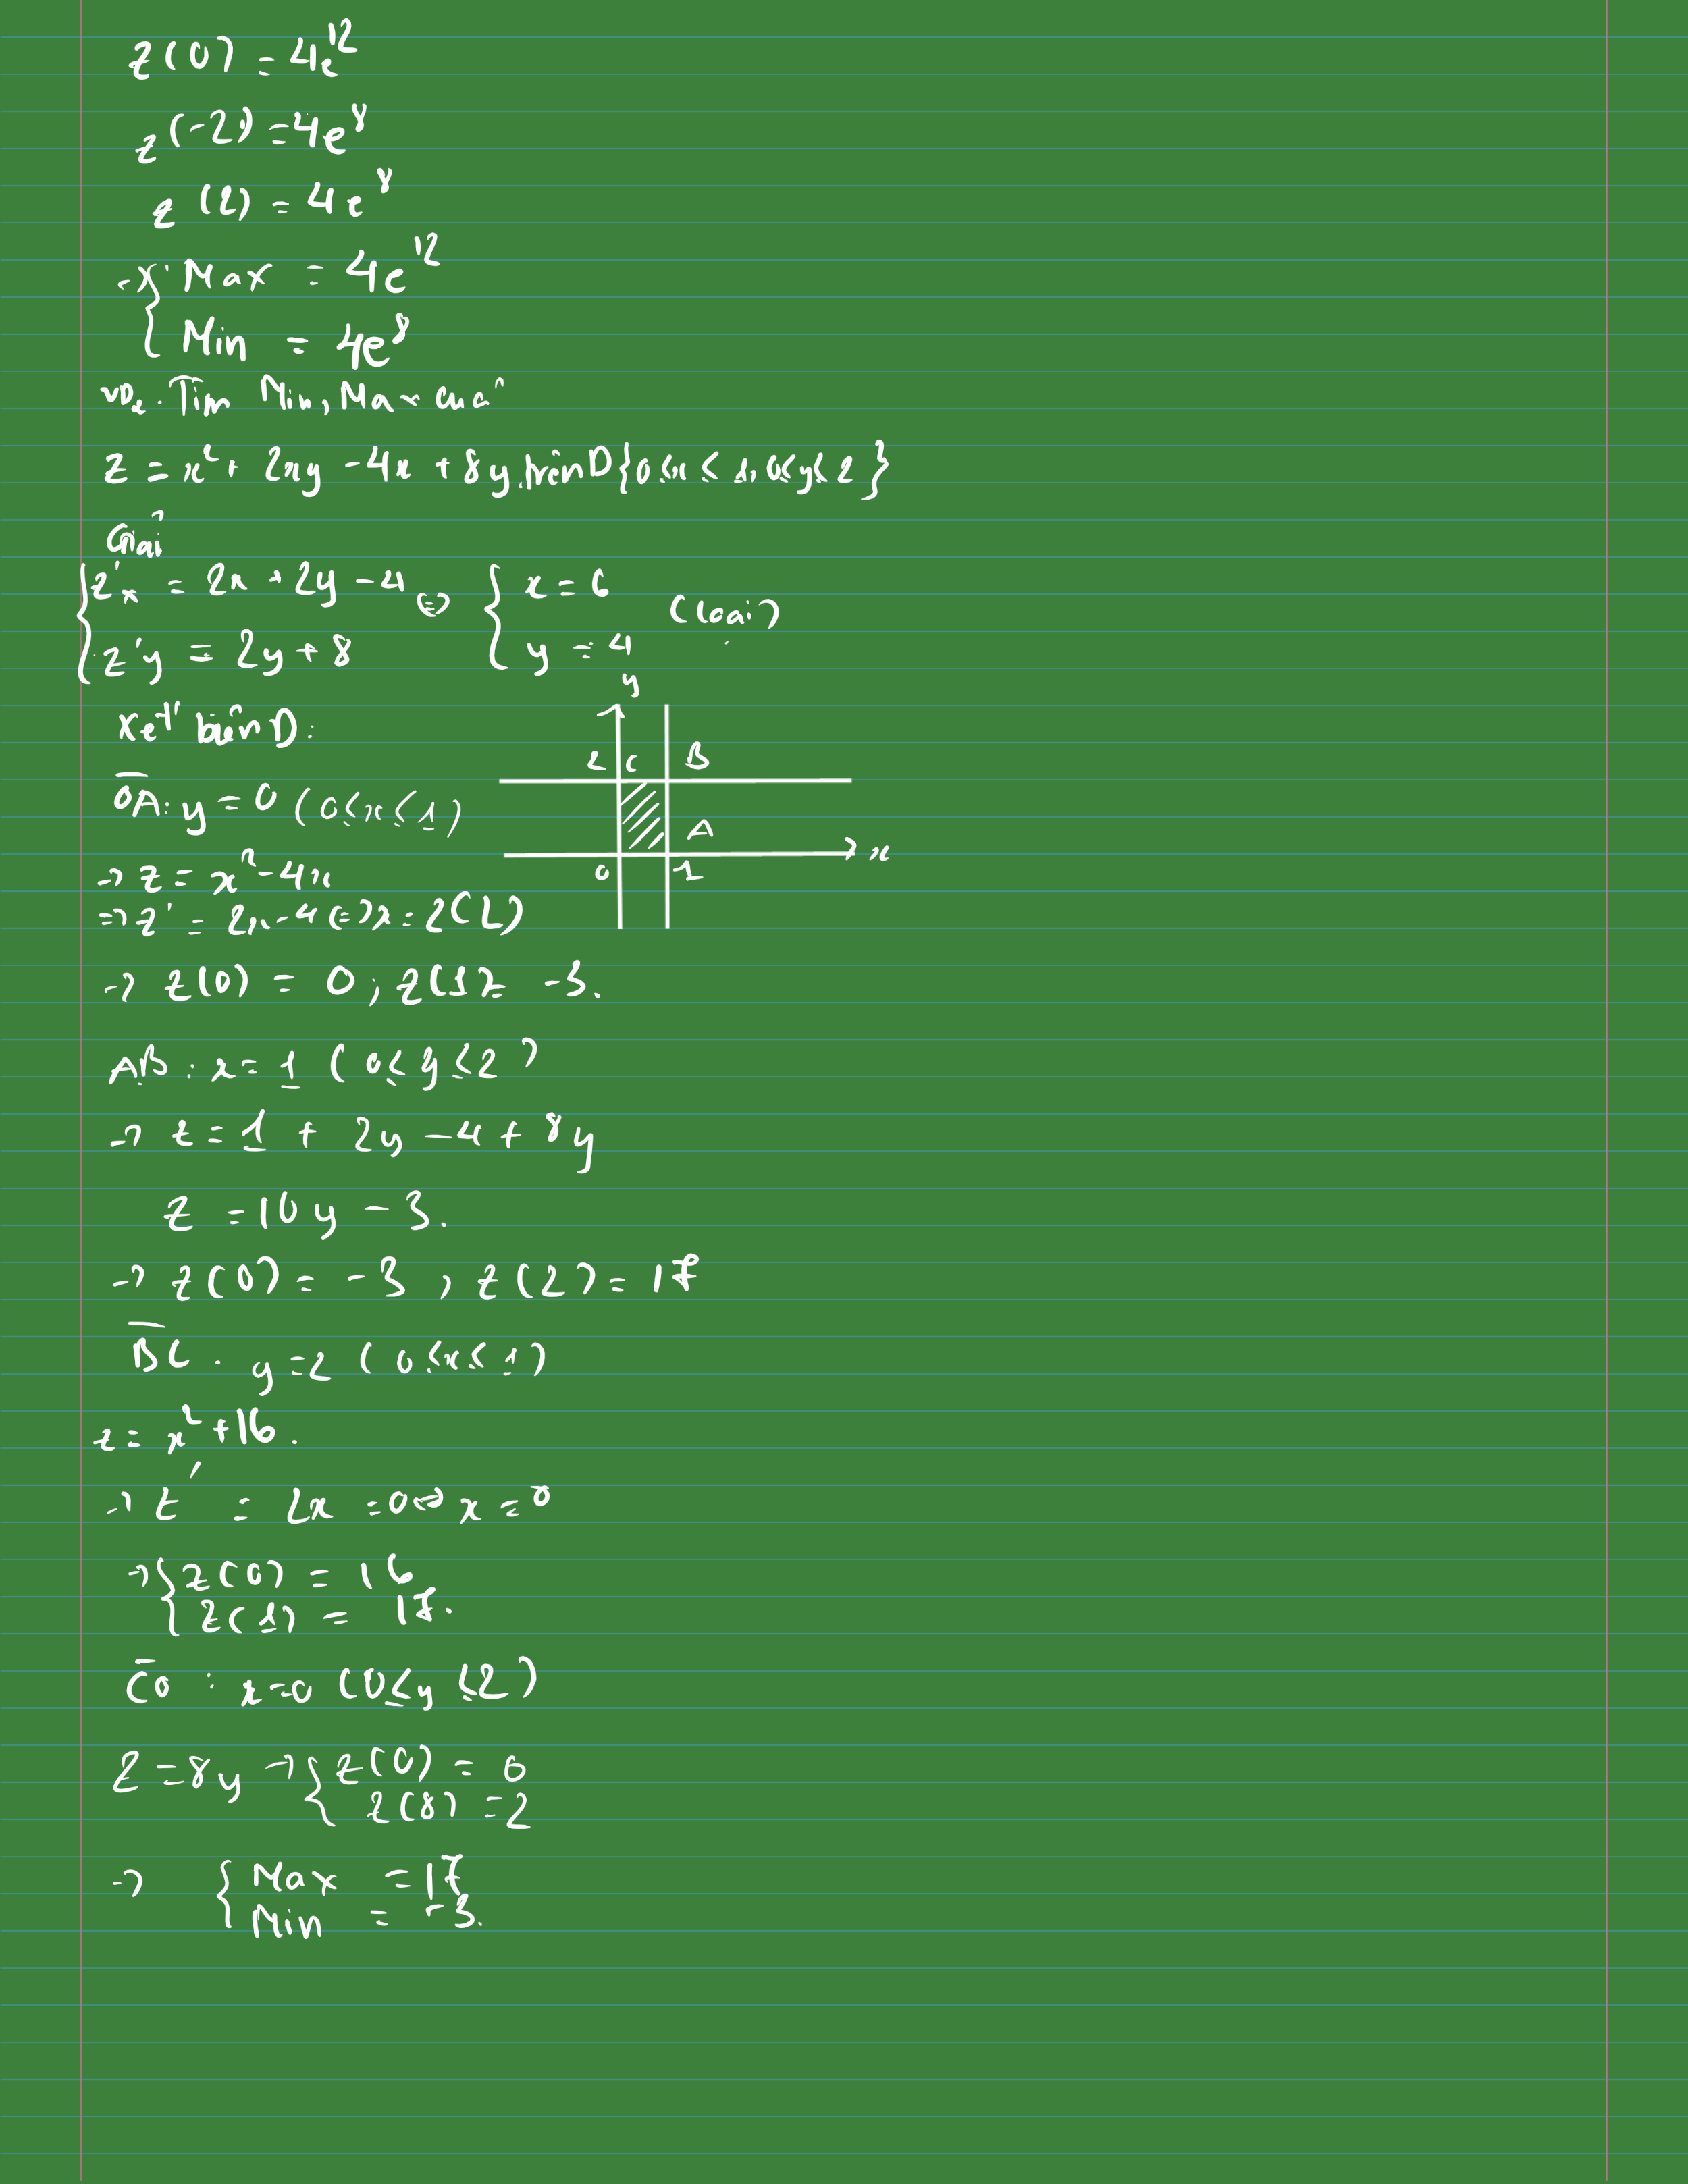 z(0) = 4e^12
z(-2) = 4e^8
z(2) = 4e^8
→ { Max = 4e^12
Min = 4e^8
VD2. Tìm Min, Max của
z = x² + 2xy - 4x + 8y, trên D{0≤x≤1, 0≤y≤2}
Giải
{ z'x = 2x + 2y - 4 ⇔ { x = 6
z'y = 2y + 8 y = 4 (loại)
Xét biên D:
y
2 C B
OA: y = 0 (0≤x≤1)
A
x
0 1
→ z = x² - 4x
→ z' = 2x - 4 ⇔ x = 2 (L)
→ z(0) = 0; z(1) = -3.
AB: x = 1 (0≤y≤2)
→ z = 1 + 2y - 4 + 8y
z = 10y - 3.
→ z(0) = -3, z(2) = 17
BC: y = 2 (0≤x≤1)
z = x² + 16.
→ z' = 2x = 0 ⇔ x = 0
→ { z(0) = 16
z(1) = 17.
CO: x = 0 (0≤y≤2)
z = 8y → { z(0) = 0
z(8) = 2
→ { Max = 17
Min = -3.